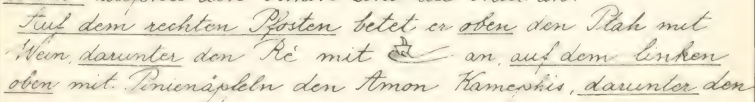 Auf dem rechten Pfosten betet er oben den Ptah mit
Wein, darunter den Rē mit an, auf dem linken
oben mit Pinienäpfeln den Amon Kamephis, darunter den